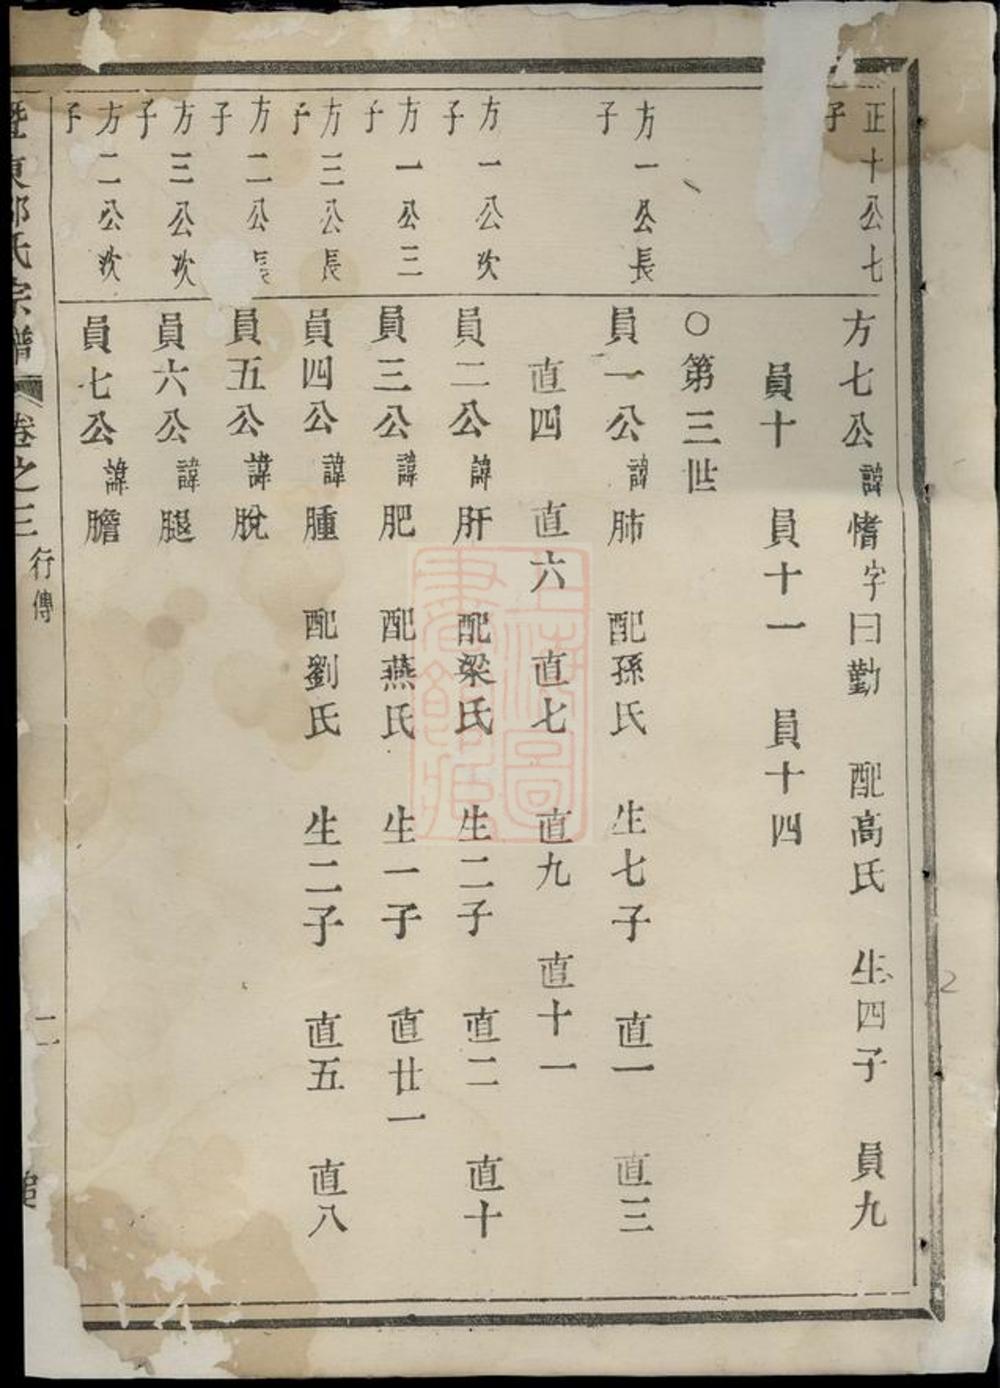 正十公七子
方七公諱愭字曰勤 配高氏 生四子 員九
員十 員十一 員十四
○第三世
方一公長子
員一公諱肺 配孫氏 生七子 直一 直三
直四 直六 直七 直九 直十一
方一公次子
員二公諱肝 配梁氏 生二子 直二 直十
方一公三子
員三公諱肥 配燕氏 生一子 直廿一
方三公長子
員四公諱腫 配劉氏 生二子 直五 直八
方二公長子
員五公諱脫
方三公次子
員六公諱腿
方二公次子
員七公諱膽
暨東郭氏宗譜 卷之三 行傳